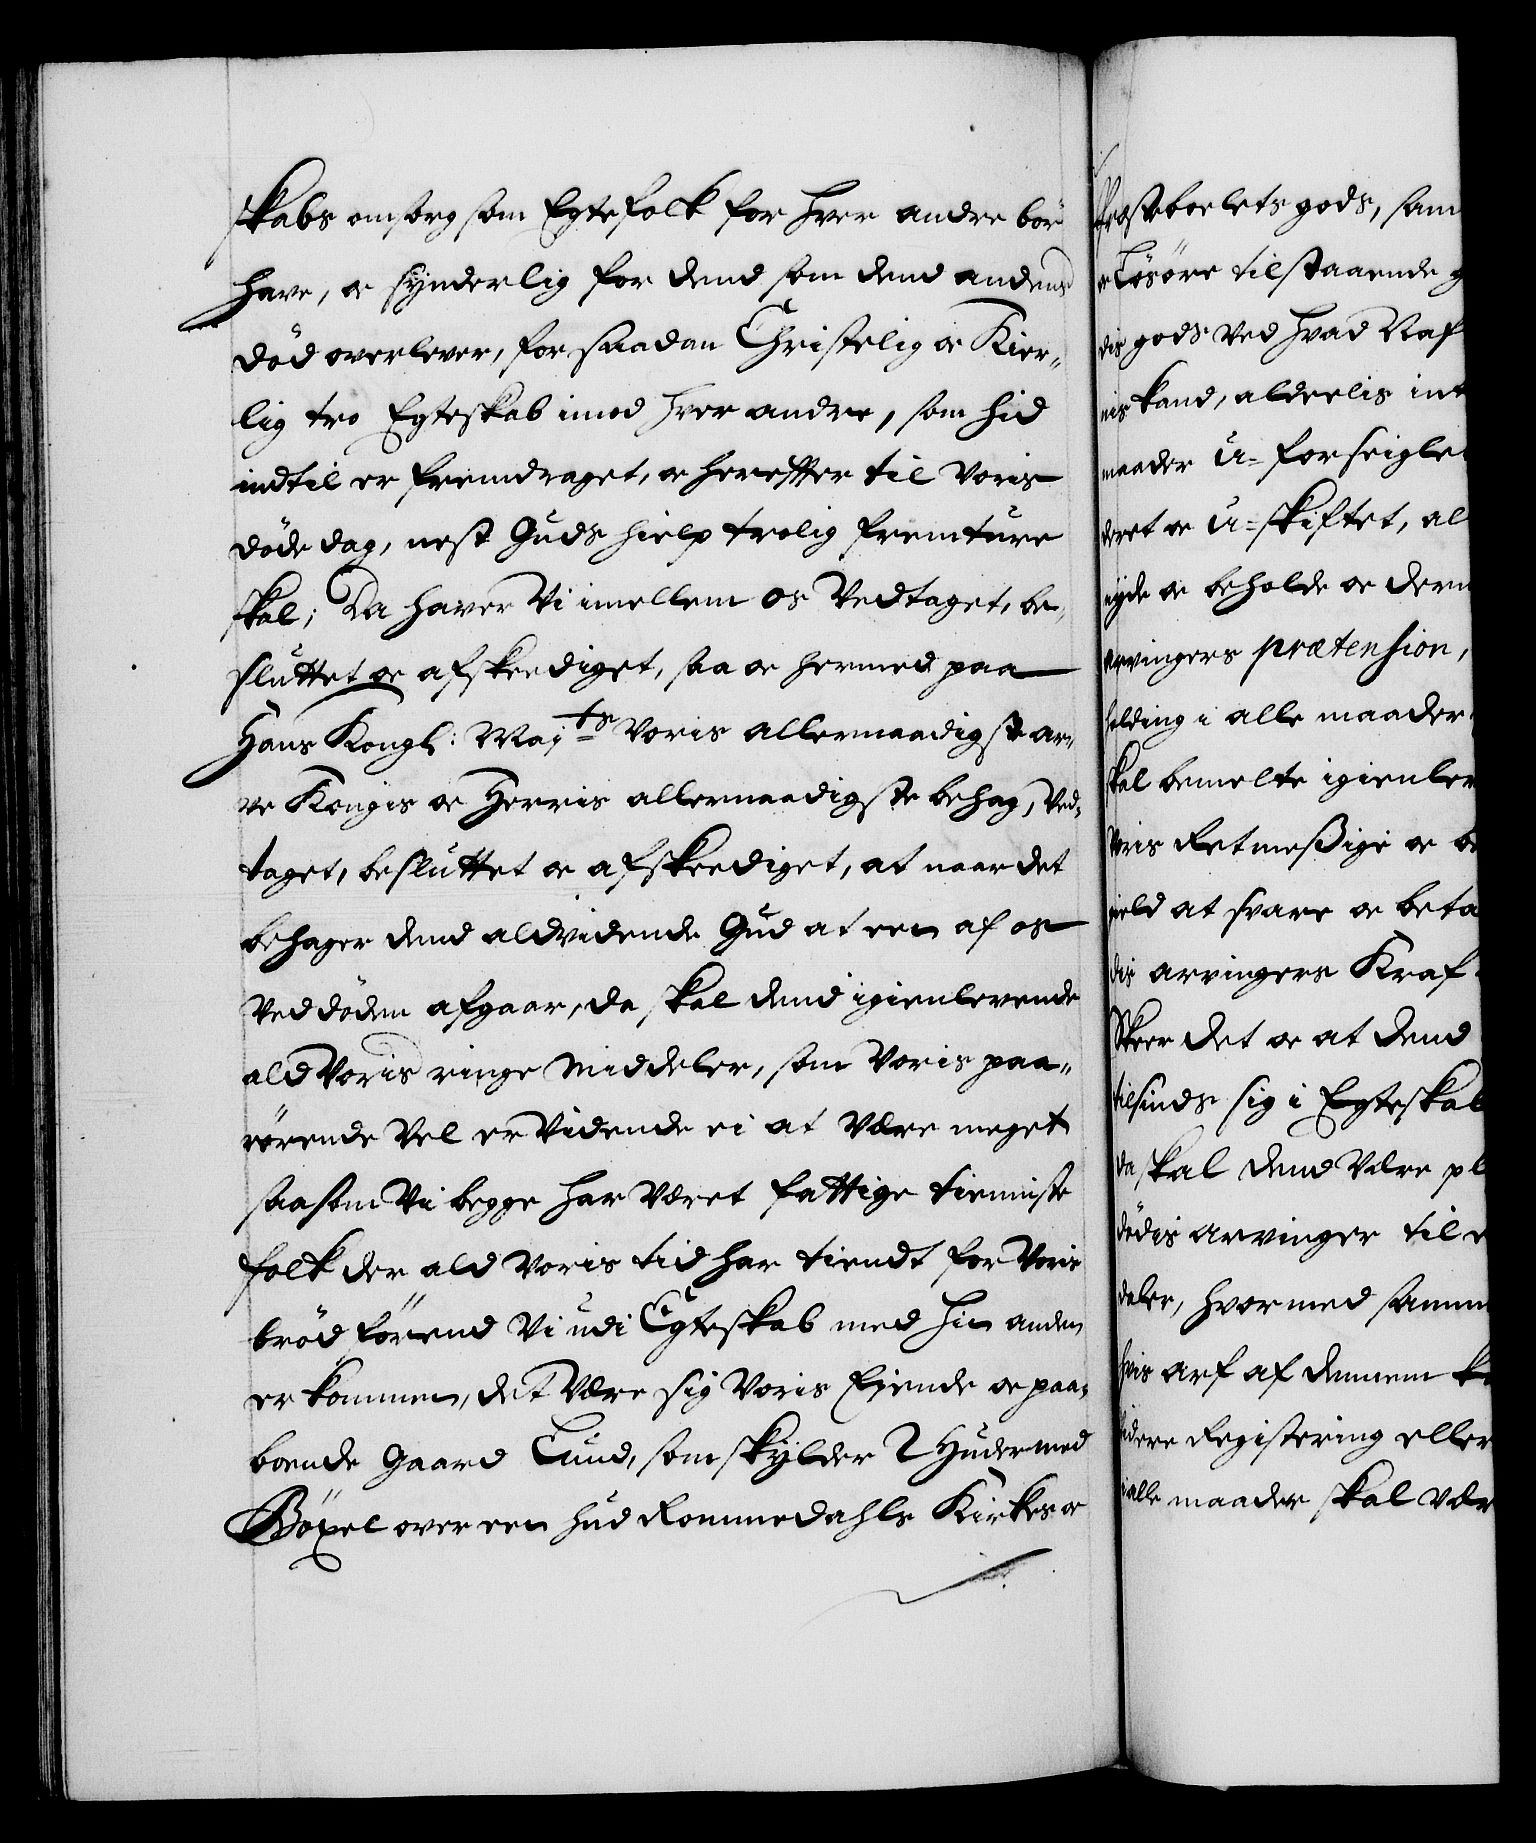 skabs omsorg som Egtefolk for hver andre bör
have, oc synderlig for dend som dend andens
död overlever, for saadan Christelig oc Kier„
lig tro Egteskab imod hver andre, som hid
indtil er fremdraget, oc hereffter til Voris
döde dag, nest Guds hielp trolig fremture
skal; Da haver Vi imellem os Vedtaget, be„
sluttet oc afskeediget, saa oc hermed paa
Hans Kongl: Maj:ts Voris allernaadigste ar„
ve Kongis oc Herris allernaadigste behag, Ved„
taget, besluttet oc afskeediget, at naar det
behager dend aldvidende Gud at een af os
Ved döden afgaar, da skal dend igienlevende
ald Voris ringe Middeler, som Voris paa„
rörende Vel er Vidende ei at Være meget
saasom Vi begge har Været fattige tienniste
folk der ald Voris tid har tiendt for Voris
bröd förend Vi udi Egteskab med hin anden
er kommen, det Være sig Voris Eiende oc paa„
boende Gaard Lund, som skylder 2 Huder med
Böxel over een hud Rommedahls Kirkes oc
Præsteboelets gods, sam
oc Lösöre tilstaaende g
dis gods Ved hvad Naf
nis kand, alderlis int
maader U=forseigle
deret oc U=skiftet, al
nyde oc beholde oc dern
arvingers prætension,
holding i alle maader
skal bemelte igienlev
Voris Retmeßige oc be
gield at svare oc beta
dis arvingers Kraf
Skeer det oc at dend
tilsinds sig i Egteskab
da skal dend Være pl
dödis arvinger til e
deler, hvormed samm
hvis arf af dennem k
videre Registering eller
i alle maader skal Vær